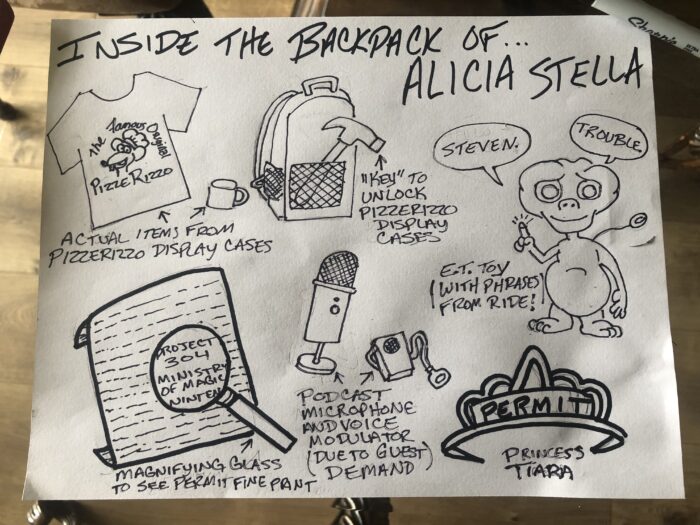 INSIDE THE BACKPACK OF...
ALICIA STELLA
The Famous Original
PIZZERIZZO
ACTUAL ITEMS FROM
PIZZERIZZO DISPLAY CASES
"KEY" TO
UNLOCK
PIZZERIZZO
DISPLAY
CASES
STEVEN.
TROUBLE.
E.T. TOY
(WITH PHRASES)
FROM RIDE!
PROJECT
304
MINISTRY
OF MAGIC
NINTEN
MAGNIFYING GLASS
TO SEE PERMIT FINE PRINT
PODCAST
MICROPHONE
AND VOICE
MODULATOR
(DUE TO GUEST)
DEMAND
PERMIT
PRINCESS
TIARA